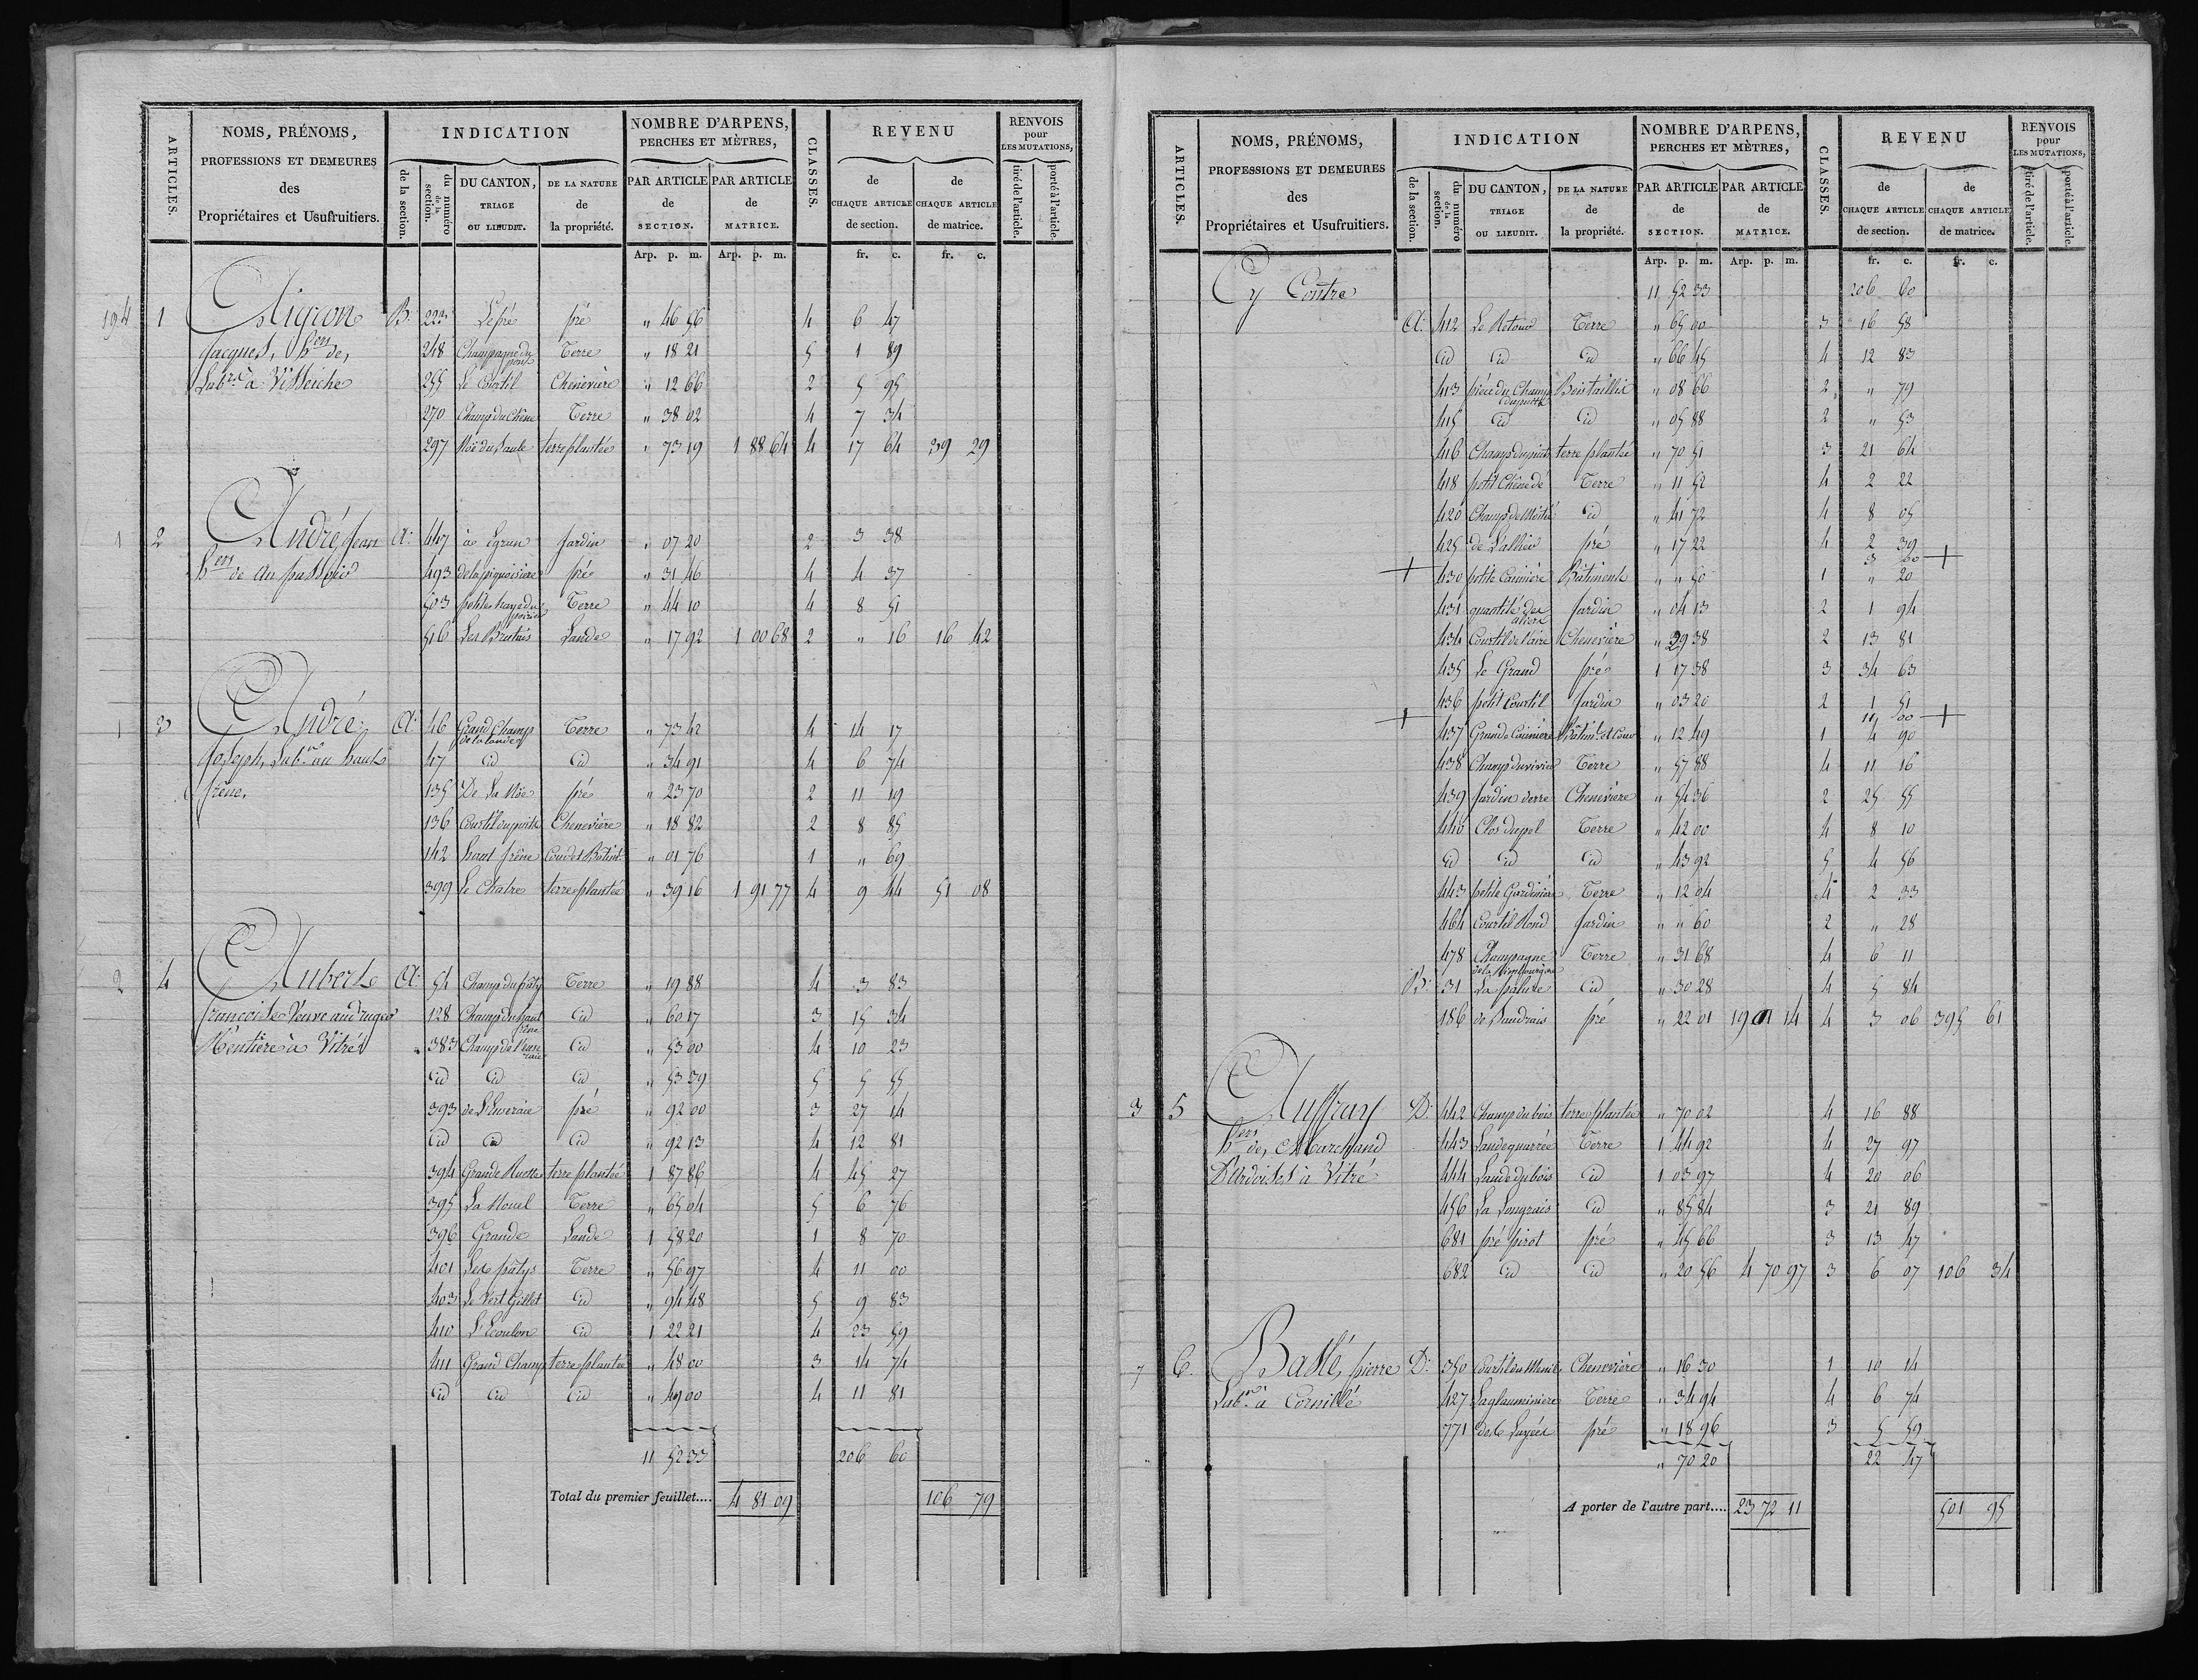 ARTICLES.
NOMS, PRÉNOMS,
PROFESSIONS ET DEMEURES
des
Propriétaires et Usufruitiers.
INDICATION
de la section.
du numéro de la section.
DU CANTON, TRIAGE OU LIEUDIT.
DE LA NATURE de la propriété.
NOMBRE D'ARPENS, PERCHES ET MÈTRES,
PAR ARTICLE de SECTION.
PAR ARTICLE de MATRICE.
CLASSES.
REVENU
de CHAQUE ARTICLE de section.
de CHAQUE ARTICLE de matrice.
RENVOIS pour LES MUTATIONS,
tiré de l'article.
porté à l'article.
Arp. p. m. Arp. p. m. fr. c. fr. c.
194 1 Aignon B. 223 Le pré pré " 46 56 4 6 47
Jacques, hers de, 248 Champagne du Terre " 18 21 5 1 89
Labr. à Visseiche 255 Le Courtil Chenevière " 12 66 2 5 95
270 Champ du Chêne Terre " 38 02 4 7 34
297 Noë du Saule terre plantée " 73 19 1 88 64 4 17 64 39 29
1 2 André, Jean A. 447 à Egrun Jardin " 07 20 2 3 38
hers de au 493 de la piquoisière pré " 31 46 4 4 37
503 petites hayes du poirier Terre " 44 10 4 8 51
516 Les Brutais Lande " 17 92 1 00 68 2 " 16 16 42
1 3 André, A. 46 Grand Champ de la lande Terre " 73 42 4 14 17
Joseph, Labr. au haut 47 id id " 34 91 4 6 74
frêne, 135 De La Noë pré " 23 70 2 11 19
136 Courtil du puits Chenevière " 18 82 2 8 85
142 haut frêne Cour et Batimt. " 01 76 1 " 69
399 Le Chatre terre plantée " 39 16 1 91 77 4 9 44 51 08
2 4 Aubert A. 54 Champ du pâty Terre " 19 88 4 3 83
françoise Veuve 128 Champ du haut frêne id " 60 17 3 15 34
Rentière à Vitré 383 Champ de id " 53 00 4 10 23
id id id " 53 39 5 5 55
393 pré " 92 00 3 27 14
id id id " 92 13 4 12 81
394 Grande Ruette terre plantée 1 87 86 4 45 27
395 La Nouel Terre " 65 04 5 6 76
396 Grande Lande 1 58 20 1 8 70
401 Les pâtys Terre " 56 97 4 11 00
403 Le Vert Gillet id " 94 48 5 9 83
410 L'Ecoulon id 1 22 21 4 23 59
411 Grand Champ terre plantée " 48 00 3 14 74
id id id " 49 00 4 11 81
11 52 33 206 60
Total du premier feuillet.... 4 81 09 106 79
ARTICLES.
NOMS, PRÉNOMS,
PROFESSIONS ET DEMEURES
des
Propriétaires et Usufruitiers.
INDICATION
de la section.
du numéro de la section.
DU CANTON, TRIAGE OU LIEUDIT.
DE LA NATURE de la propriété.
NOMBRE D'ARPENS, PERCHES ET MÈTRES,
PAR ARTICLE de SECTION.
PAR ARTICLE de MATRICE.
CLASSES.
REVENU
de CHAQUE ARTICLE de section.
de CHAQUE ARTICLE de matrice.
RENVOIS pour LES MUTATIONS,
tiré de l'article.
porté à l'article.
Arp. p. m. Arp. p. m. fr. c. fr. c.
Cy Contre 11 52 33 206 60
A. 412 Le Retour Terre " 65 00 3 16 58
id id id " 66 45 4 12 83
413 pièce du Champ Bois taillis " 08 66 2 " 79
415 id id " 05 88 2 " 53
416 Champ du puits terre plantée " 70 51 3 21 64
418 petit Chênedé Terre " 11 52 4 2 22
420 Champ de Meitié id " 41 72 4 8 05
425 pré " 17 22 4 2 39
3 60 +
+ 430 petite Cainière Bâtiments " " 50 1 " 20
431 quantité des Jardin " 04 13 2 1 94
434 Courtil de l'aire Chenevière " 29 38 2 13 81
435 Le Grand pré 1 17 38 3 34 63
436 petit Courtil Jardin " 03 20 2 1 51
00 +
+ 437 Grande Cainière Bâtimt. et Cour " 12 49 1 4 90
438 Champ du vivier Terre " 57 88 4 11 16
439 Jardin verre Chenevière " 54 36 2 25 55
440 Clos Terre " 42 00 4 8 10
id id id " 43 92 5 4 56
443 petite Gardinière Terre " 12 04 4 2 33
464 Courtil Rond Jardin " " 60 2 " 28
478 Champagne Terre " 31 68 4 6 11
B. 31 La pature id " 30 28 4 5 84
186 de Saudrais pré " 22 01 19 01 14 4 3 06 395 61
3 5 Auffray D. 442 Champ du bois terre plantée " 70 02 4 16 88
hers de, Marchand 443 Lande quarrée Terre 1 44 92 4 27 97
D'ardoises à Vitré 444 Lande du bois id 1 03 97 4 20 06
456 La Longrais id " 85 84 3 21 89
681 pré pirot pré " 45 66 3 13 47
682 id id " 20 56 4 70 97 3 6 07 106 34
7 6. Baslé, pierre D. 350 Courtil du Chenevière " 16 30 1 10 14
Labr. à Cornillé 427 Laglauminière Terre " 34 94 4 6 74
771 pré " 18 96 3 5 59
" 70 20 22 47
A porter de l'autre part.... 23 72 11 501 95